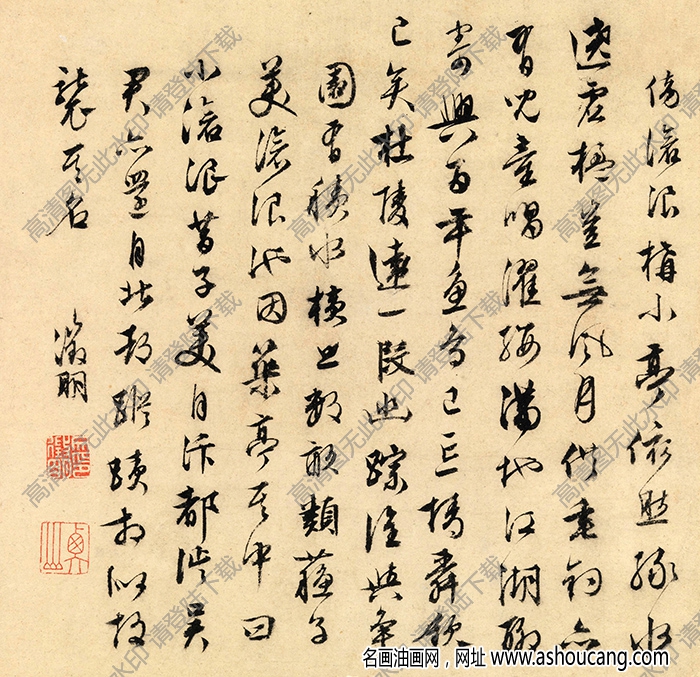 傍滄浪構小亭依然綠水
遶虛楹豈無風月供垂釣亦
有兒童唱濯纓滿地江湖聊
寄興百年魚鳥已忘情舜欽
已矣杜陵遠一段幽蹤誰與爭
園有積水橫亘數畝類蘇子
美滄浪池因築亭其中曰
小滄浪昔子美自汴都徙吳
君亦還自北都蹤蹟相似故
襲其名
徵明
高清图无此水印 请登陆下载
名画油画网，网址 www.ashoucang.com